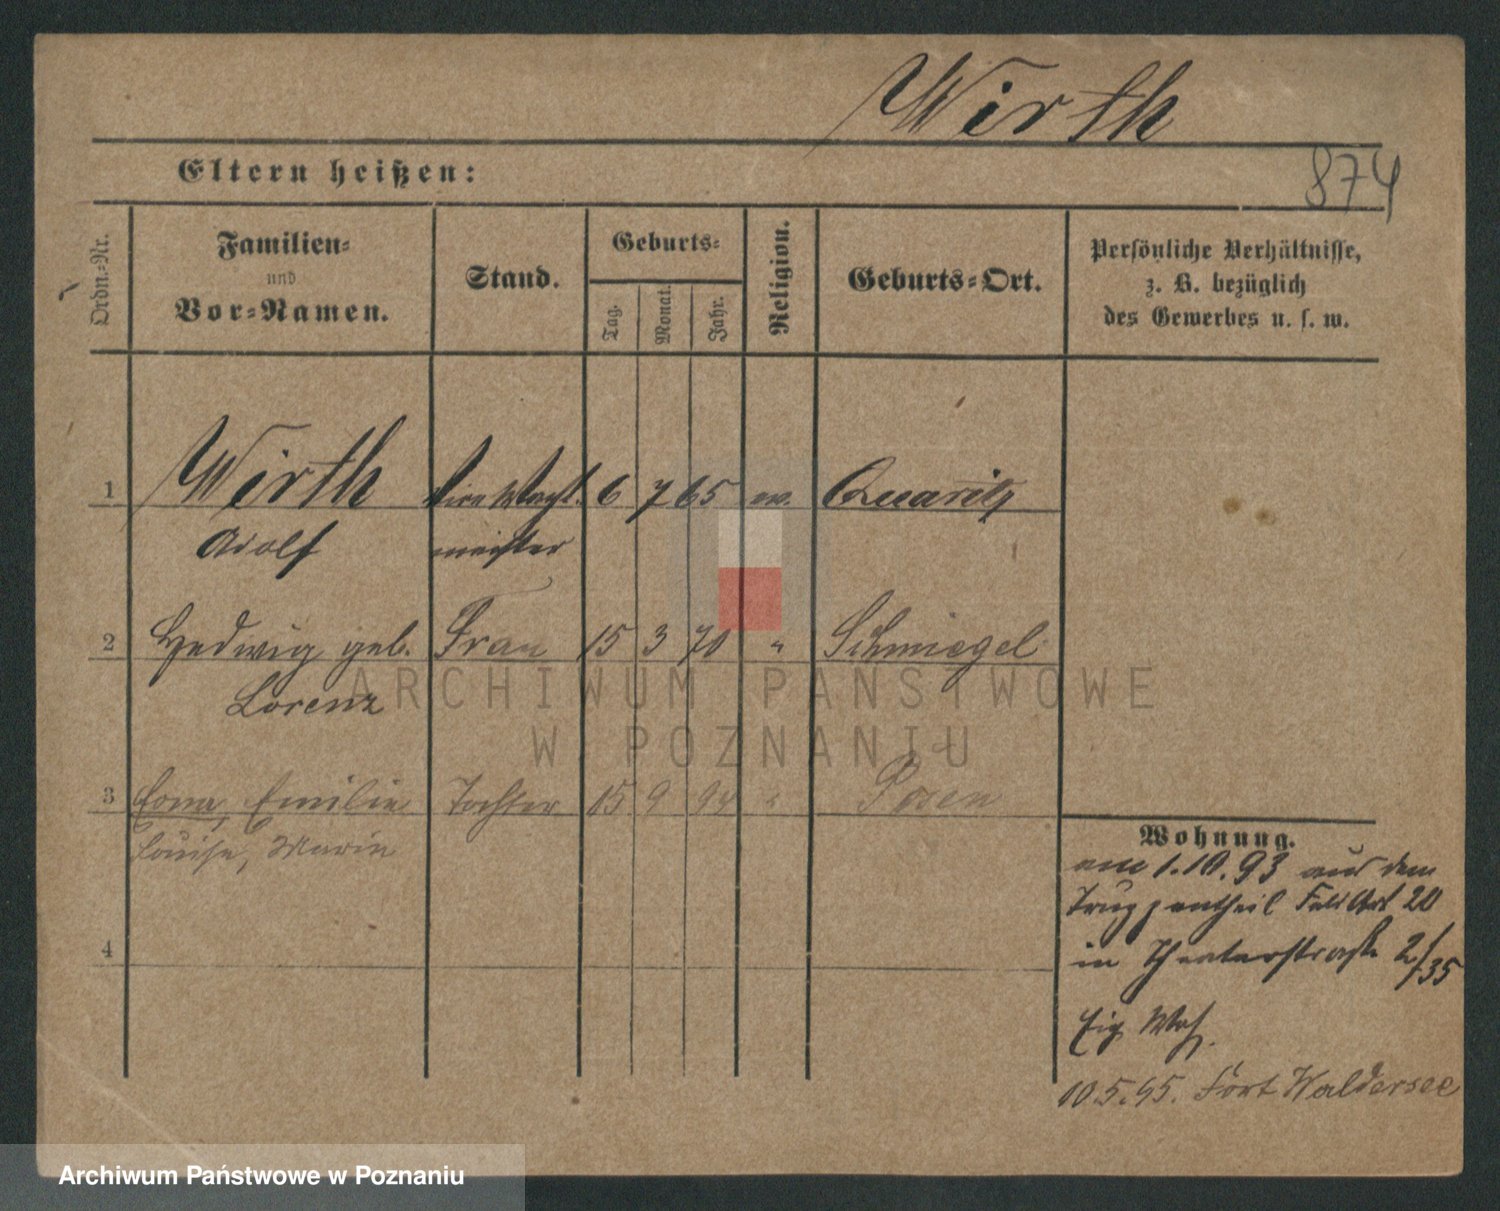 Wirth
874
Eltern heißen:
Ordn.-Nr.
Familien-
und
Vor-Namen.
Stand.
Geburts-
Tag.
Monat.
Jahr.
Religion.
Geburts-Ort.
Persönliche Verhältnisse,
z. B. bezüglich
des Gewerbes u. s. w.
1 Wirth 6 7 65 ev. Quaritz
Adolf meister
2 Hedwig geb. Frau 15 3 70 " Schmiegel
Lorenz
ARCHIWUM PAŃSTWOWE
W POZNANIU
3 Erna, Emilie Tochter 15 9 94 " Posen
Louise, Marie
4
Wohnung.
am 1.10.93 aus dem
Truppentheil Feld Art 20
in Theaterstraße 2/35
Eig.
10.5.95. Fort Waldersee
Archiwum Państwowe w Poznaniu